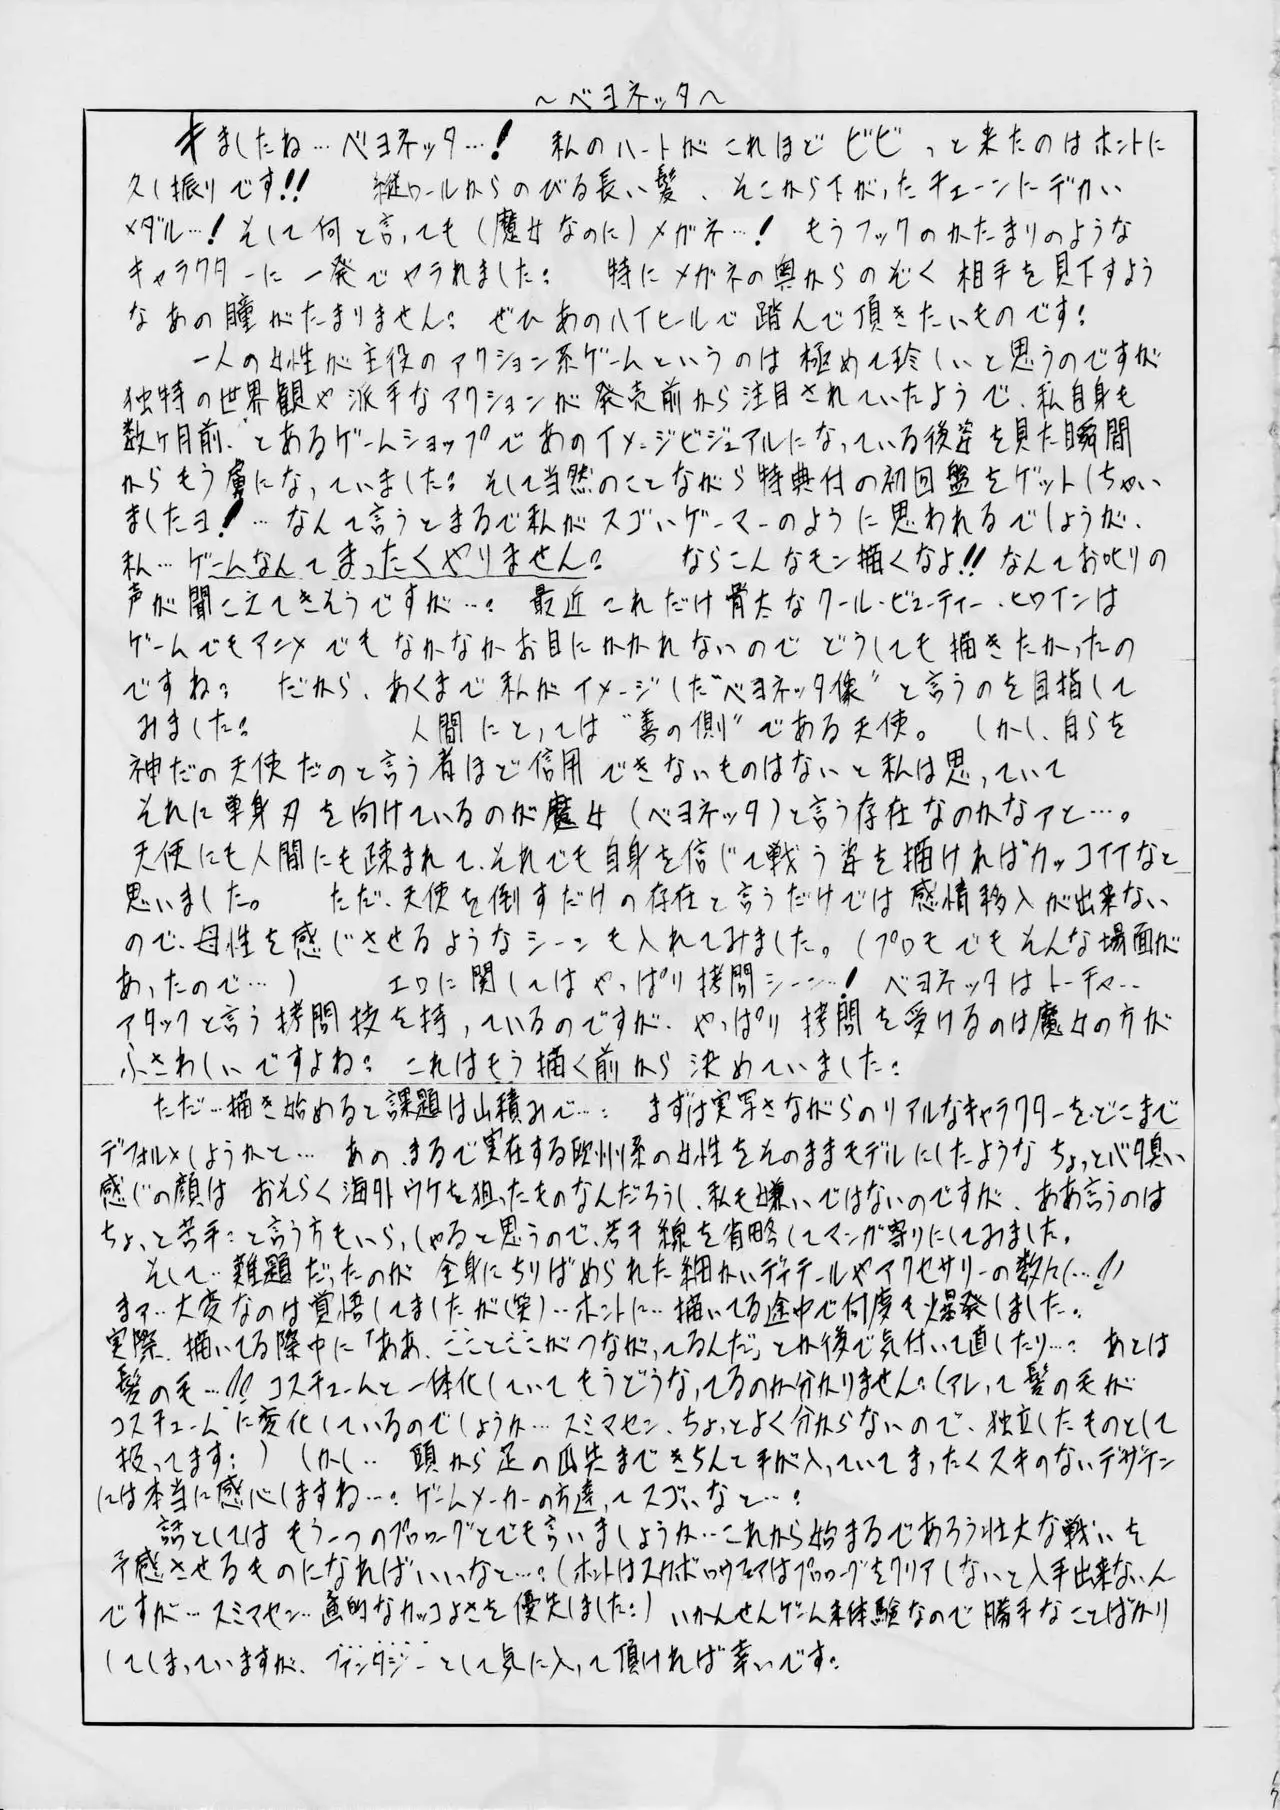 ～ベヨネッタ～
キましたね…ベヨネッタ…! 私のハートがこれほど ビビ っと来たのはホントに
久し振りです!! 縦ロールからのびる長い髪、そこから下がったチェーンにデカい
メダル…! そして何と言っても(魔女なのに)メガネ…! もうフックのかたまりのような
キャラクターに 一発でヤラれました: 特にメガネの奥からのぞく 相手を見下すよう
なあの瞳がたまりません: ぜひあのハイヒールで 踏んで頂きたいものです:
一人の女性が主役のアクション系ゲームというのは 極めて珍しいと思うのですが
独特の世界観や派手なアクションが発売前から注目されていたようで、私自身も
数ヶ月前、とあるゲームショップであのイメージビジュアルになっている後姿を見た瞬間
からもう虜になっていました: そして当然のことながら特典付の初回盤をゲットしちゃい
ましたヨ!…なんて言うとまるで私がスゴいゲーマーのように思われるでしょうが、
私…ゲームなんてまったくやりません: ならこんなモン描くなよ!! なんてお叱りの
声が聞こえてきそうですが…: 最近これだけ骨太なクール・ビューティー・ヒロインは
ゲームでもアニメでもなかなかお目にかかれないので どうしても描きたかったの
ですね: だから、あくまで私がイメージした“ベヨネッタ像”と言うのを目指して
みました: 人間にとっては“善の側”である天使。 しかし、自らを
神だの天使だのと言う者ほど信用できないものはないと私は思っていて
それに単身刃を向けているのが魔女(ベヨネッタ)と言う存在なのかなァと…。
天使にも人間にも疎まれて、それでも自身を信じて戦う姿を描ければカッコイイなと
思いました。 ただ、天使を倒すだけの存在と言うだけでは感情移入が出来ない
ので、母性を感じさせるようなシーンも入れてみました。(プロモでもそんな場面が
あったので…) エロに関してはやっぱり拷問シーン…! ベヨネッタはトーチャー
アタックと言う拷問技を持っているのですが、やっぱり 拷問を受けるのは魔女の方が
ふさわしいですよね: これはもう描く前から決めていました:
ただ…描き始めると課題は山積みで…: まずは実写さながらのリアルなキャラクターを、どこまで
デフォルメしようかと… あの、まるで実在する欧州系の女性をそのままモデルにしたような ちょっとバタ臭い
感じの顔は おそらく海外ウケを狙ったものなんだろうし、私も嫌いではないのですが、ああ言うのは
ちょっと苦手:と言う方もいらっしゃると思うので、若干 線を省略してマンガ寄りにしてみました。
そして…難題だったのが 全身にちりばめられた細かいディテールやアクセサリーの数々…!!
まァ…大変なのは覚悟してましたが(笑)…ホントに…描いてる途中で何度も爆発しました:
実際、描いてる際中に「ああ、こことここがつながってるんだ」とか後で気付いて直したり…: あとは
髪の毛…!! コスチュームと一体化していてもうどうなってるのか分かりません:(アレって髪の毛が
コスチュームに変化しているのでしょうか…スミマセン、ちょっとよく分からないので、独立したものとして
扱ってます:) しかし… 頭から足の爪先まできちんと手が入っていてまったくスキのないデザイン
には本当に感心しますね…: ゲームメーカーの方達ってスゴいなと…:
話としては もう一つのプロローグとでも言いましょうか…これから始まるであろう壮大な戦いを
予感させるものになればいいなと…:(ホントはスカボロウフェアはプロローグをクリアしないと入手出来ないん
ですが…スミマセン…画的なカッコよさを優先しました:) いかんせんゲーム未体験なので勝手なことばかり
してしまっていますが、ファンタジーとして気に入って頂ければ幸いです: